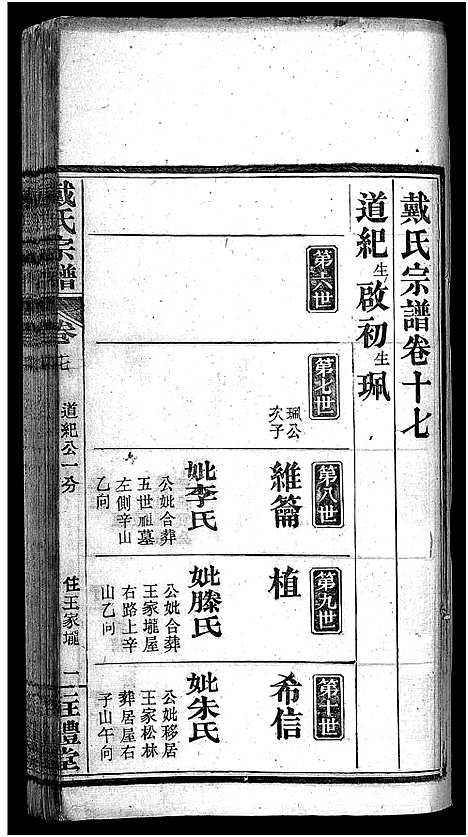 戴氏宗譜卷十七
道紀生啟初生珮
第六世
第七世
珮公
次子
第八世
維籥
妣李氏
公妣合葬
五世祖墓
左側辛山
乙向
第九世
植
妣滕氏
公妣合葬
王家壠屋
右路上辛
山乙向
第十世
希信
妣朱氏
公妣移居
王家松林
葬居屋右
子山午向
戴氏宗譜
卷十七
道紀公一分
住王家壠
一
禮堂